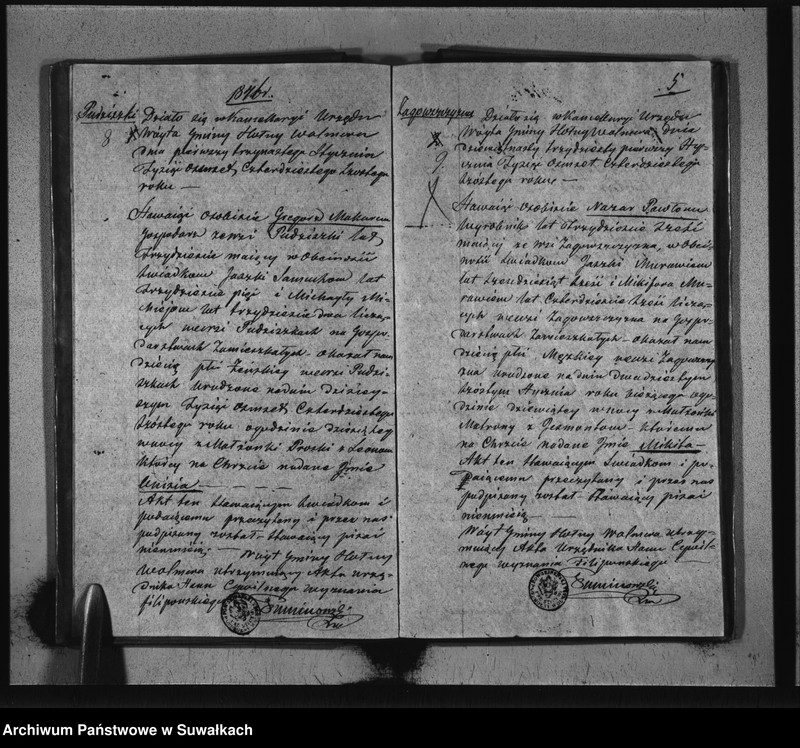 1846 r.
Pudziszki
8
Działo się w Kancellaryi Urzędu
Wóyta Gminy Hołny Wolmera
dnia pierwszy trzynastego Stycznia
Tysiąc Osmset Czterdziestego Szóstego
roku —
Stawaiąc osobiście Gregorz Makarow
Gospodarz ze wsi Pudziszki lat
trzydzieście maiący w Obecności
świadkow Jaszki lat
trzydzieście pięć i Michayły
lat trzydzieście dwa licza-
cych we wsi Pudziszkach na Gospo-
darstwach Zamieszkałych. Okazał nam
dziecię płci Żenskiey we wsi Pudzi-
szkach Urodzone na dniu dzisiey-
szym Tysiąc Osmset Czterdziestego
Szóstego roku o godzinie
w nocy z Małżonki Proski z
którey na Chrzcie nadane Imie
Akt ten stawaiącym świadkom i
podaiącemu przeczytany i przez nas
podpisany został. Stawaiący pisać
nieumieią — Wóyt Gminy Hołny
Wolmera utrzymuiący Akta Urzę-
dnika Stanu Cywilnego wyznania
filiponskiego
5
Zagowszczyzna
9.
Działo się w Kancellaryi Urzędu
Wóyta Gminy Hołny Wolmera dnia
trzydziesty pierwszy Sty-
cznia Tysiąc Osmset Czterdziestego
Szóstego roku —
Stawaiąc osobiście Nazar Pawłow
Wyrobnik lat trzydzieście sześć
maiący ze wsi Zagowszczyzna, w Obec-
ności świadkow Jaszki Murawiem
lat i Mikifora Mu-
rawiem lat Czterdzieście licza-
cych we wsi Zagowszczyzna na Gospo-
darstwach Zamieszkałych — Okazał nam
dziecię płci Męzkiey we wsi Zagowszczy-
zna urodzone na dniu dwudziestym
szóstym Stycznia roku bieżącego o go-
dzinie dziewiątey w nocy z Małżonki
Matrony z — któremu
na Chrzcie nadane Imie Mikita —
Akt ten stawaiącym świadkom i po-
daiącemu przeczytany i przez nas
podpisany został — Stawaiący pisać
nieumieią
Wóyt Gminy Hołny Wolmera utrzy-
muiący Akta Urzędnika Stanu Cywil-
nego wyznania filiponskiego
Archiwum Państwowe w Suwałkach